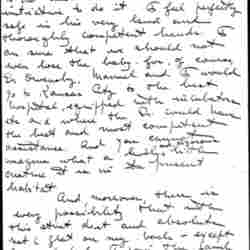 to do it. I feel perfectly
safe in his very kind and
thoroughly competent hands. I
am sure that we should not
even lose the baby. for, of course,
Dr Ormsby, Maxwell and I would
go to Kansas City to the best
hospital, equipped with incubators
etc and where the Dr. would have
the best and most competent
assistance. And you
imagine what a
creature it is in the present
habitat.
And, moreover, there is
every possibility that with
this strict diet and absolutely
flat on my back - except